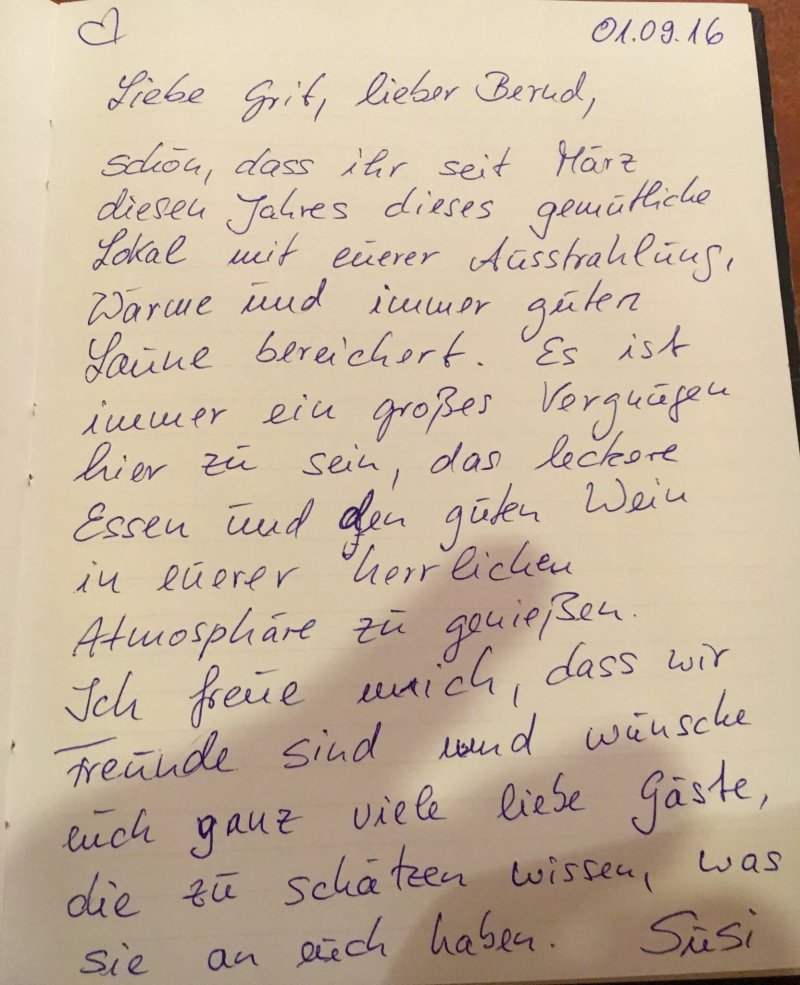 01.09.16
Liebe Grit, lieber Bernd,
schön, dass ihr seit März
diesen Jahres dieses gemütliche
Lokal mit euerer Ausstrahlung,
Wärme und immer guten
Laune bereichert. Es ist
immer ein großes Vergnügen
hier zu sein, das leckere
Essen und den guten Wein
in euerer herrlichen
Atmosphäre zu genießen.
Ich freue mich, dass wir
Freunde sind und wünsche
euch ganz viele liebe Gäste,
die zu schätzen wissen, was
sie an euch haben. Susi